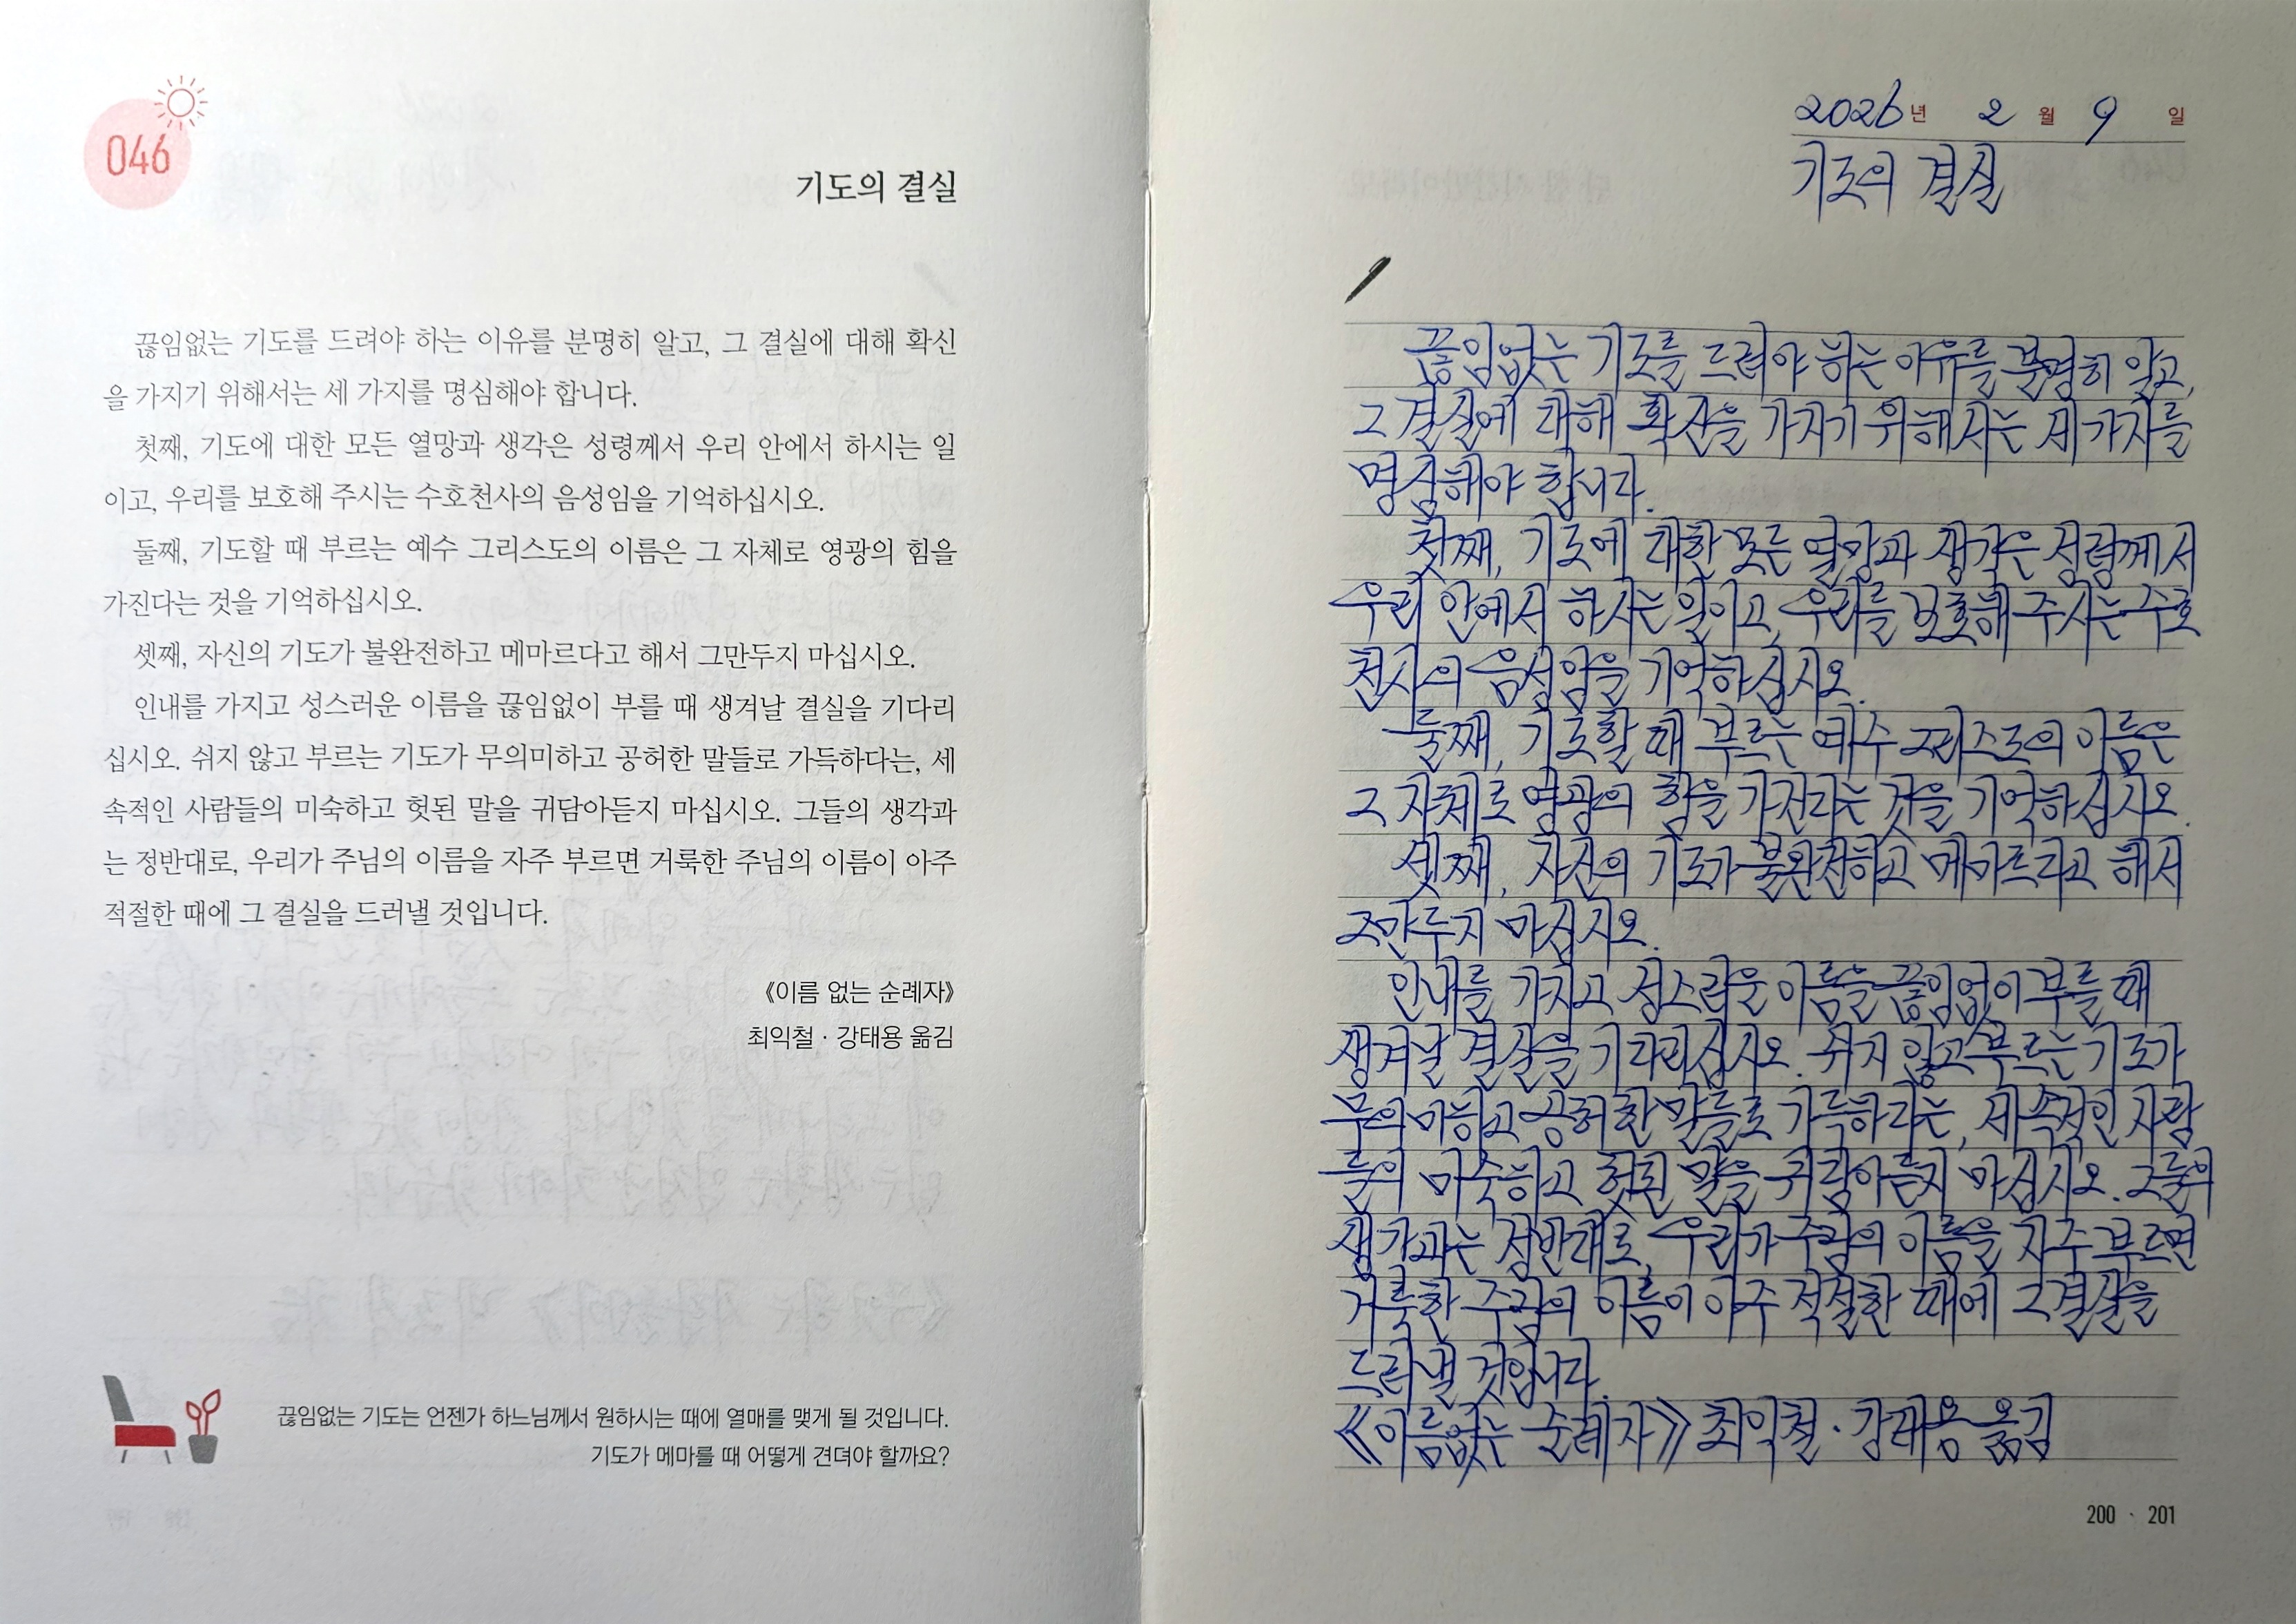 046
기도의 결실
끊임없는 기도를 드려야 하는 이유를 분명히 알고, 그 결실에 대해 확신
을 가지기 위해서는 세 가지를 명심해야 합니다.
첫째, 기도에 대한 모든 열망과 생각은 성령께서 우리 안에서 하시는 일
이고, 우리를 보호해 주시는 수호천사의 음성임을 기억하십시오.
둘째, 기도할 때 부르는 예수 그리스도의 이름은 그 자체로 영광의 힘을
가진다는 것을 기억하십시오.
셋째, 자신의 기도가 불완전하고 메마르다고 해서 그만두지 마십시오.
인내를 가지고 성스러운 이름을 끊임없이 부를 때 생겨날 결실을 기다리
십시오. 쉬지 않고 부르는 기도가 무의미하고 공허한 말들로 가득하다는, 세
속적인 사람들의 미숙하고 헛된 말을 귀담아듣지 마십시오. 그들의 생각과
는 정반대로, 우리가 주님의 이름을 자주 부르면 거룩한 주님의 이름이 아주
적절한 때에 그 결실을 드러낼 것입니다.
《이름 없는 순례자》
최익철 · 강태용 옮김
끊임없는 기도는 언젠가 하느님께서 원하시는 때에 열매를 맺게 될 것입니다.
기도가 메마를 때 어떻게 견뎌야 할까요?
2026년 2월 9일
기도의 결실
끊임없는 기도를 드려야 하는 이유를 분명히 알고,
그 결실에 대해 확신을 가지기 위해서는 세 가지를
명심해야 합니다.
첫째, 기도에 대한 모든 열망과 생각은 성령께서
우리 안에서 하시는 일이고, 우리를 보호해 주시는 수호
천사의 음성임을 기억하십시오.
둘째, 기도할 때 부르는 예수 그리스도의 이름은
그 자체로 영광의 힘을 가진다는 것을 기억하십시오.
셋째, 자신의 기도가 불완전하고 메마르다고 해서
그만두지 마십시오.
인내를 가지고 성스러운 이름을 끊임없이 부를 때
생겨날 결실을 기다리십시오. 쉬지 않고 부르는 기도가
무의미하고 공허한 말들로 가득하다는, 세속적인 사람
들의 미숙하고 헛된 말을 귀담아듣지 마십시오. 그들의
생각과는 정반대로, 우리가 주님의 이름을 자주 부르면
거룩한 주님의 이름이 아주 적절한 때에 그 결실을
드러낼 것입니다.
《이름없는 순례자》 최익철 · 강태용 옮김
200 · 201